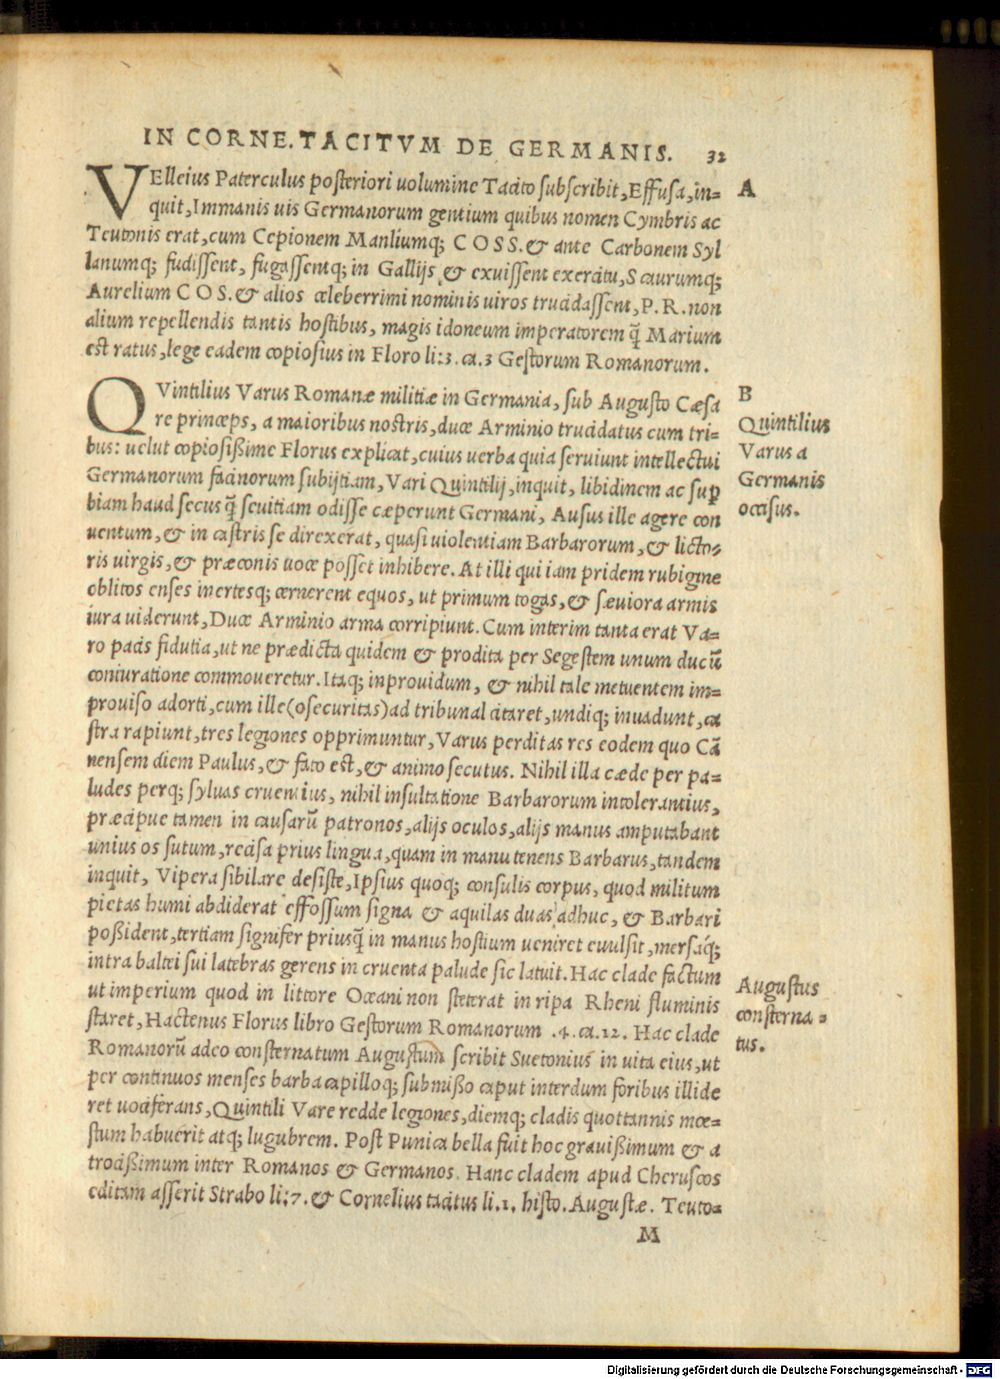 IN CORNE.TACITVM DE GERMANIS. 32
VElleius Paterculus posteriori uolumine Tacito subscribit,Effusa,in= A
quit,Immanis uis Germanorum gentium quibus nomen Cymbris ac
Teutonis erat,cum Cepionem Manliumq; COSS.& ante Carbonem Syl
lanumq; fudissent, fugassentq; in Gallijs & exuissent exercitu,Scaurumq;
Aurelium COS.& alios celeberrimi nominis uiros trucidassent,P.R.non
alium repellendis tantis hostibus, magis idoneum imperatorem q̃ Marium
est ratus,lege eadem copiosius in Floro li:3.ca.3 Gestorum Romanorum.
QVintilius Varus Romanæ militiæ in Germania, sub Augusto Cæsa
re princeps, a maioribus nostris,duce Arminio trucidatus cum tri=
bus: uelut copiosißime Florus explicat,cuius uerba quia seruiunt intellectui
Germanorum facinorum subijtiam, Vari Quintilij,inquit, libidinem ac sup
biam haud secus q̃ seuitiam odisse cæperunt Germani, Ausus ille agere con
uentum,& in castris se direxerat, quasi uiolentiam Barbarorum,& licto=
ris uirgis,& præconis uoce posset inhibere. At illi qui iam pridem rubigine
oblitos enses inertesq; cernerent equos, ut primum togas,& sæuiora armis
iura uiderunt,Duce Arminio arma corripiunt. Cum interim tanta erat Va=
ro pacis fidutia,ut ne prædicta quidem & prodita per Segestem unum ducũ
coniuratione commoueretur.Itaq; inprouidum, & nihil tale metuentem im=
prouiso adorti,cum ille(o securitas)ad tribunal citaret,undiq; inuadunt,ca
stra rapiunt,tres legiones opprimuntur,Varus perditas res eodem quo Cã
nensem diem Paulus,& fato est,& animo secutus. Nihil illa cæde per pa=
ludes perq; syluas cruentius, nihil insultatione Barbarorum intolerantius,
præcipue tamen in causarũ patronos,alijs oculos,alijs manus amputabant
unius os sutum,recisa prius lingua,quam in manu tenens Barbarus,tandem
inquit, Vipera sibilare desiste,Ipsius quoq; consulis corpus, quod militum
pietas humi abdiderat effossum signa & aquilas duas adhuc, & Barbari
poßident,tertiam signifer priusq̃ in manus hostium ueniret euulsit,mersáq;
intra baltei sui latebras gerens in cruenta palude sic latuit.Hac clade factum
ut imperium quod in littore Oceani non steterat in ripa Rheni fluminis
staret,Hactenus Florus libro Gestorum Romanorum .4.ca.12. Hac clade
Romanorũ adeo consternatum Augustum scribit Suetonius in uita eius,ut
per continuos menses barba capilloq; submißo caput interdum foribus illide
ret uociferans,Quintili Vare redde legiones,diemq; cladis quottannis mœ=
stum habuerit atq; lugubrem. Post Punica bella fuit hoc grauißimum & a
trocißimum inter Romanos & Germanos. Hanc cladem apud Cheruscos
editam asserit Strabo li:7.& Cornelius tacitus li.1. histo.Augustæ. Teuto=
M
B
Quintilius
Varus a
Germanis
occisus.
Augustus
consterna=
tus.
Digitalisierung gefördert durch die Deutsche Forschungsgemeinschaft - DFG